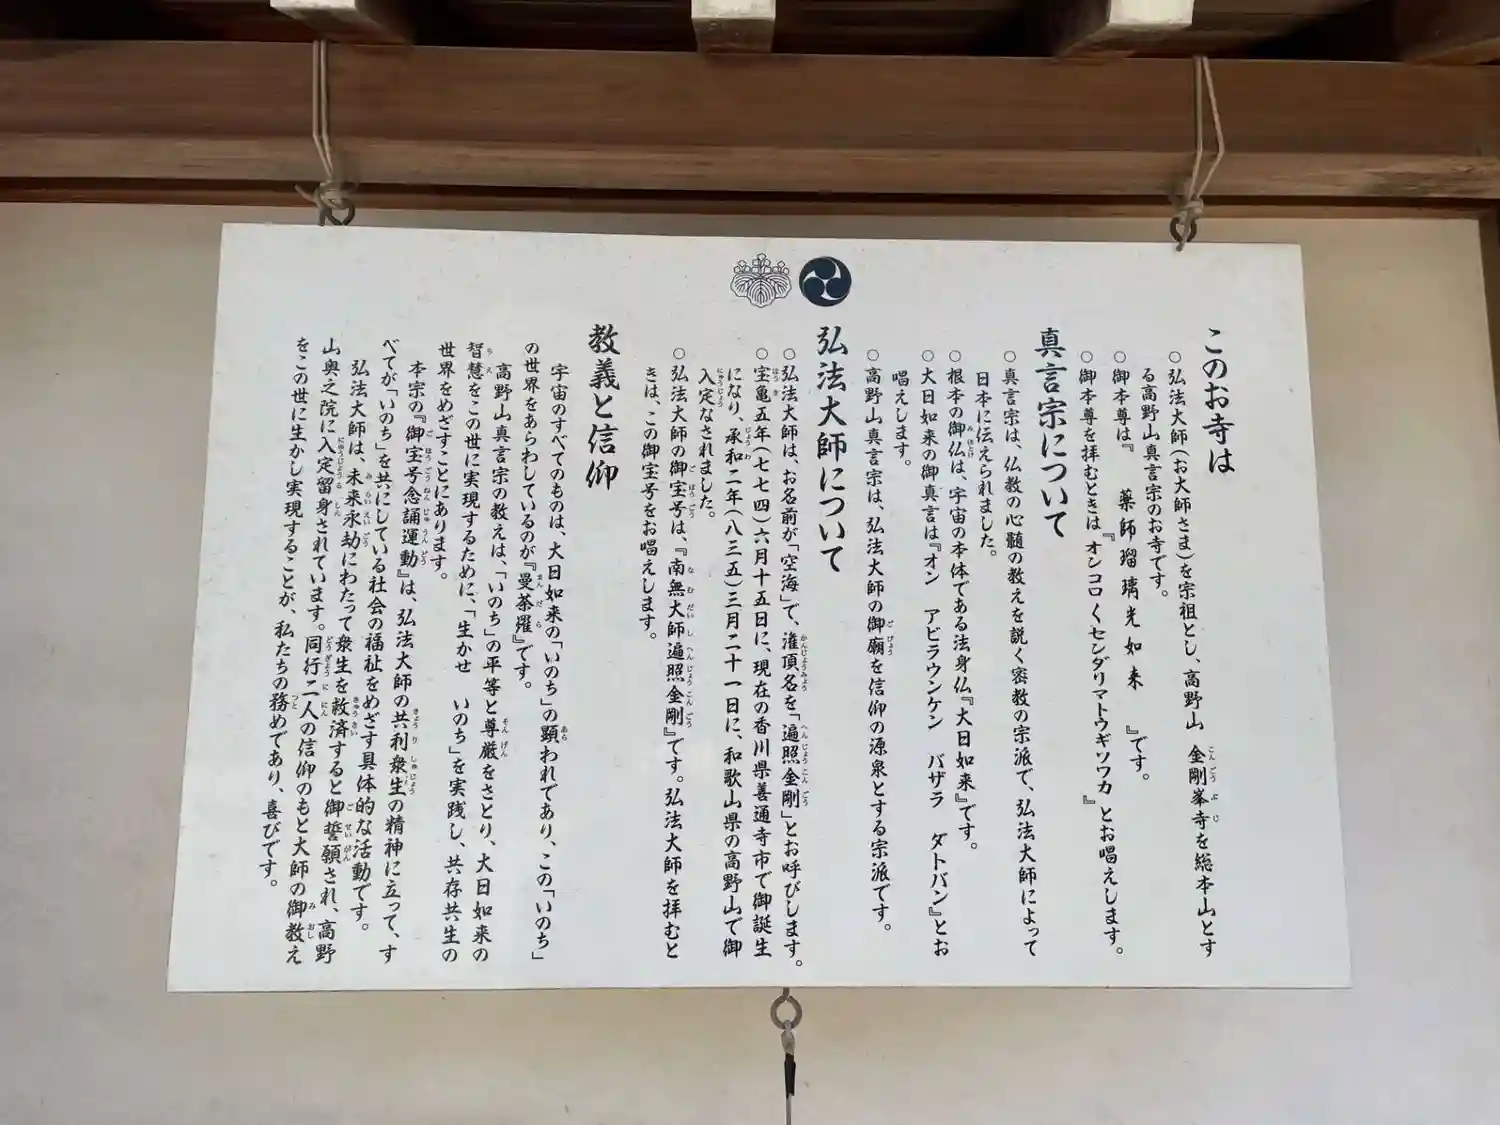 このお寺は
○弘法大師(お大師さま)を宗祖とし、高野山 金剛峯寺を総本山とす
る高野山真言宗のお寺です。
○御本尊は『 薬師瑠璃光如来 』です。
○御本尊を拝むときは『オンコロくセンダリマトウギソワカ』とお唱えします。
真言宗について
○真言宗は、仏教の心髄の教えを説く密教の宗派で、弘法大師によって
日本に伝えられました。
○根本の御仏は、宇宙の本体である法身仏『大日如来』です。
○大日如来の御真言は『オン アビラウンケン バザラ ダトバン』とお
唱えします。
○高野山真言宗は、弘法大師の御廟を信仰の源泉とする宗派です。
弘法大師について
○弘法大師は、お名前が「空海」で、灌頂名を「遍照金剛」とお呼びします。
○宝亀五年(七七四)六月十五日に、現在の香川県善通寺市で御誕生
になり、承和二年(八三五)三月二十一日に、和歌山県の高野山で御
入定なされました。
○弘法大師の御宝号は、『南無大師遍照金剛』です。弘法大師を拝むと
きは、この御宝号をお唱えします。
教義と信仰
宇宙のすべてのものは、大日如来の「いのち」の顕われであり、この「いのち」
の世界をあらわしているのが『曼荼羅』です。
高野山真言宗の教えは、「いのち」の平等と尊厳をさとり、大日如来の
智慧をこの世に実現するために、「生かせ いのち」を実践し、共存共生の
世界をめざすことにあります。
本宗の『御宝号念誦運動』は、弘法大師の共利衆生の精神に立って、す
べてが「いのち」を共にしている社会の福祉をめざす具体的な活動です。
弘法大師は、未来永劫にわたって衆生を救済すると御誓願され、高野
山奥之院に入定留身されています。同行二人の信仰のもと大師の御教え
をこの世に生かし実現することが、私たちの務めであり、喜びです。